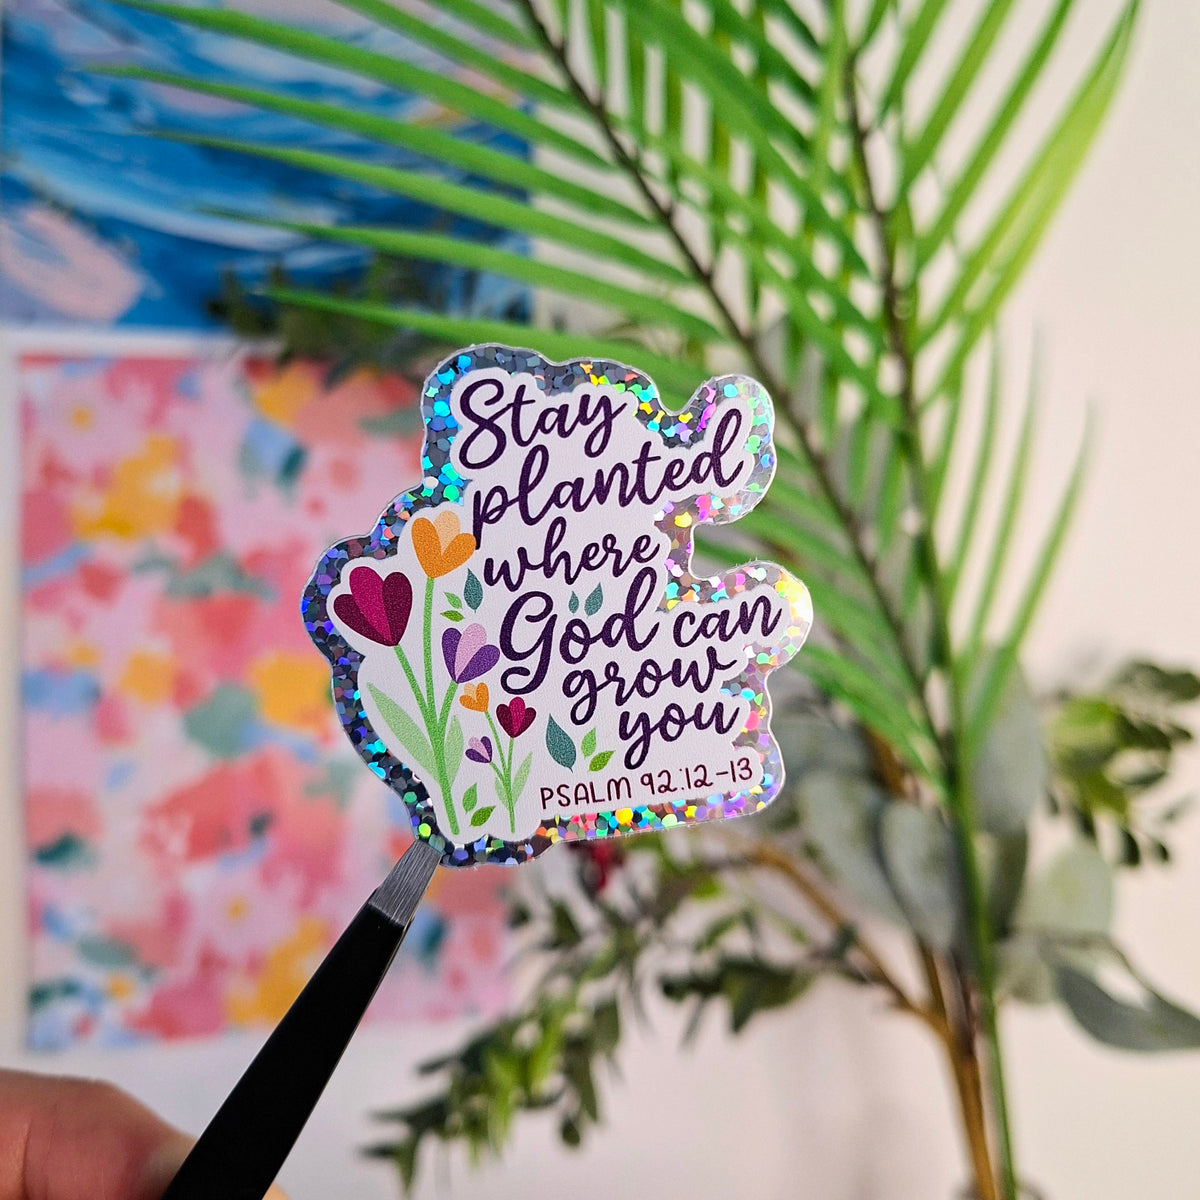 Stay
planted
where
God can
grow
you
PSALM 92:12-13